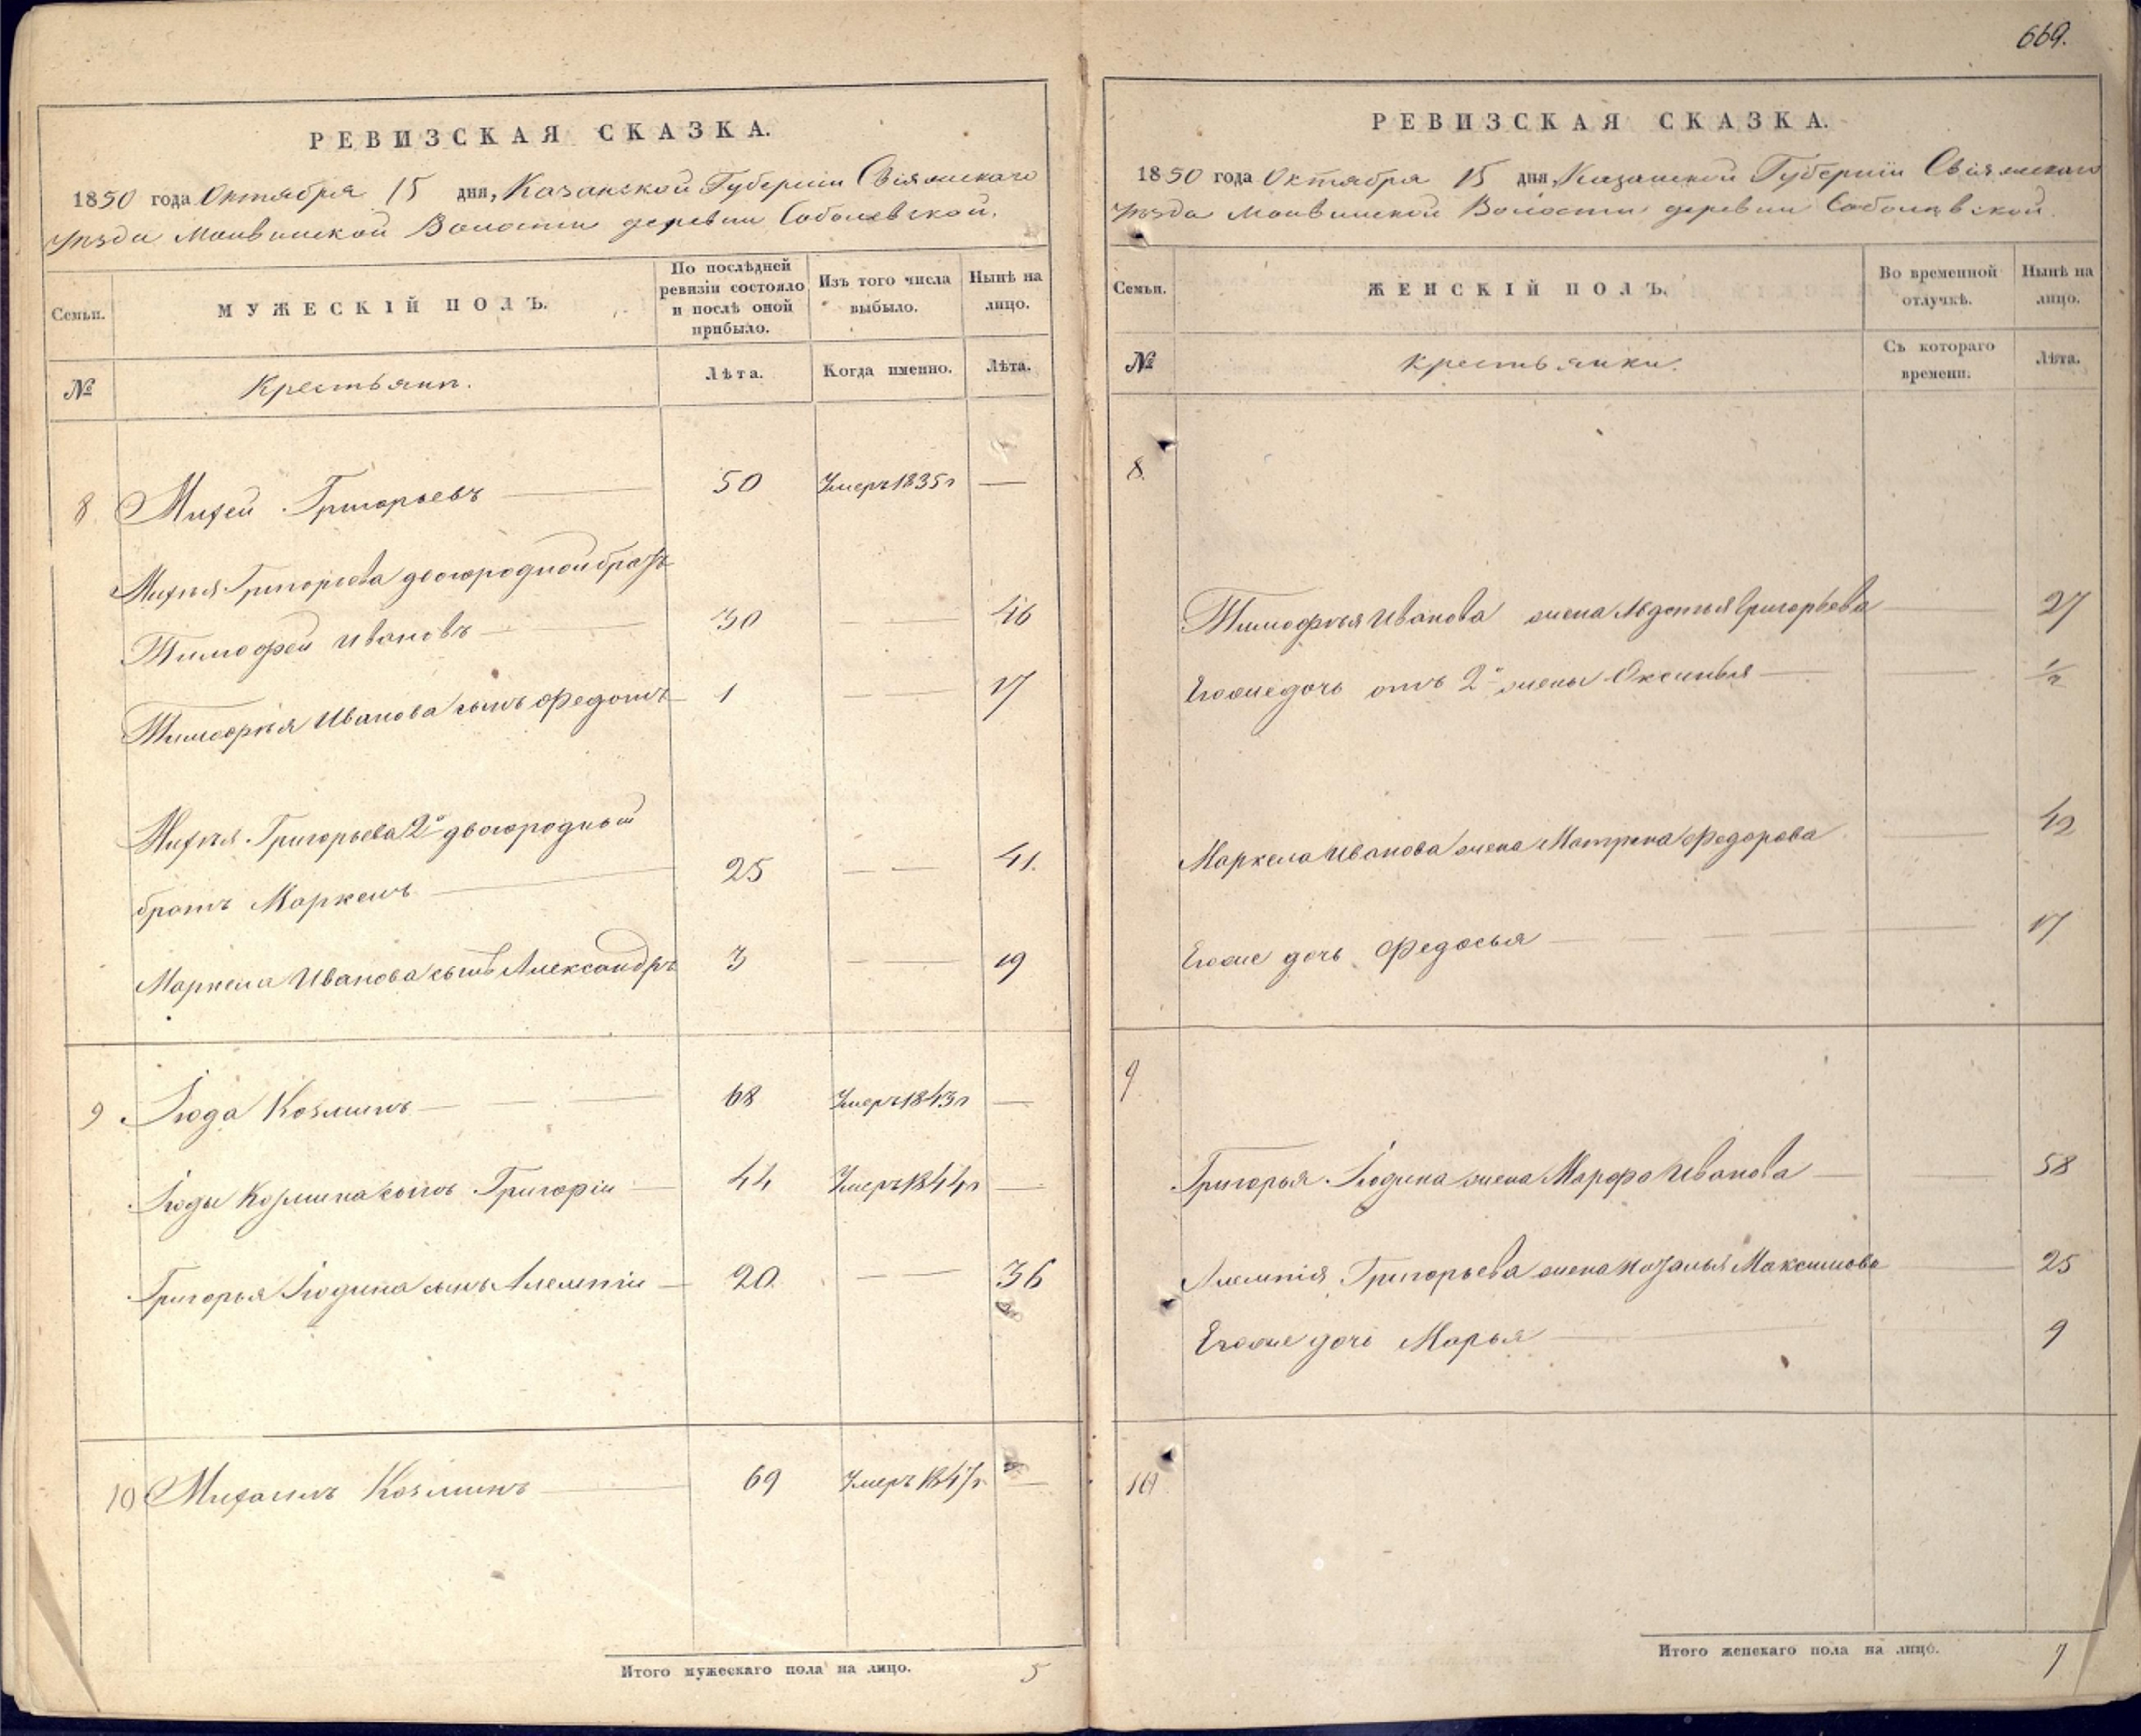 669.
РЕВИЗСКАЯ СКАЗКА.
1850 года Октября 15 дня, Казанской Губернiи Свiяжскаго
уѣзда Волости деревни Соболевской.
Семьи. МУЖЕСКIЙ ПОЛЪ. По послѣдней ревизiи состояло и послѣ оной прибыло. Изъ того числа выбыло. Нынѣ на лицо.
№ Крестьяне. Лѣта. Когда именно. Лѣта.
8 Михей Григорьевъ 50 Умеръ 1835 г —
Михѣя Григорьева двоюродной братъ
Тимофей Ивановъ 30 — — 46
Тимофѣя Иванова сынъ Федотъ 1 — — 17
Михѣя Григорьева 2й двоюродный
братъ Маркелъ 25 — — 41.
Маркела Иванова сынъ Александръ 3 — — 19
9 Iюда Козминъ 68 Умеръ 1843 г —
Iюды Козмина сынъ Григорiй 44 Умеръ 1844 г —
Григорья Iюдина сынъ 20. — — 36
10 Михаилъ Козминъ 69 Умеръ 1847 г. —
Итого мужескаго пола на лицо. 5
РЕВИЗСКАЯ СКАЗКА.
1850 года Октября 15 дня, Казанской Губернiи Свiяжскаго
уѣзда Волости деревни Соболевской.
Семьи. ЖЕНСКIЙ ПОЛЪ. Во временной отлучкѣ. Нынѣ на лицо.
№ крестьянки. Съ котораго времени. Лѣта.
8.
Тимофѣя Иванова жена Авдотья Григорьева — 27
Егоже дочь отъ 2й жены Оксинья — 1/2
Маркела Иванова жена Матрена Федорова — 42
Егоже дочь Федосья — 17
9
Григорья Iюдина жена Марфа Иванова — 58
Григорьева жена Наталья Максимова — 25
Егоже дочь Марья — 9
10
Итого женскаго пола на лицо. 7